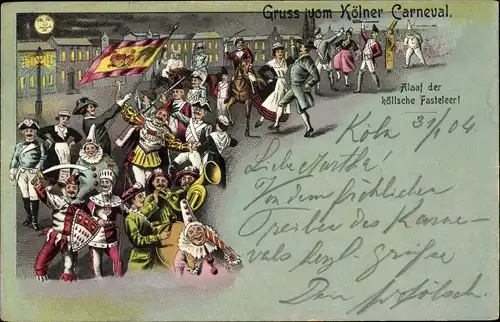 Gruss vom Kölner Carneval.
Alaaf der
köllsche Fasteleer!
Köln 31/1 04
Liebe Martha!
Von dem fröhlichen
Treiben des Karne-
vals herzl. Grüße
Dein